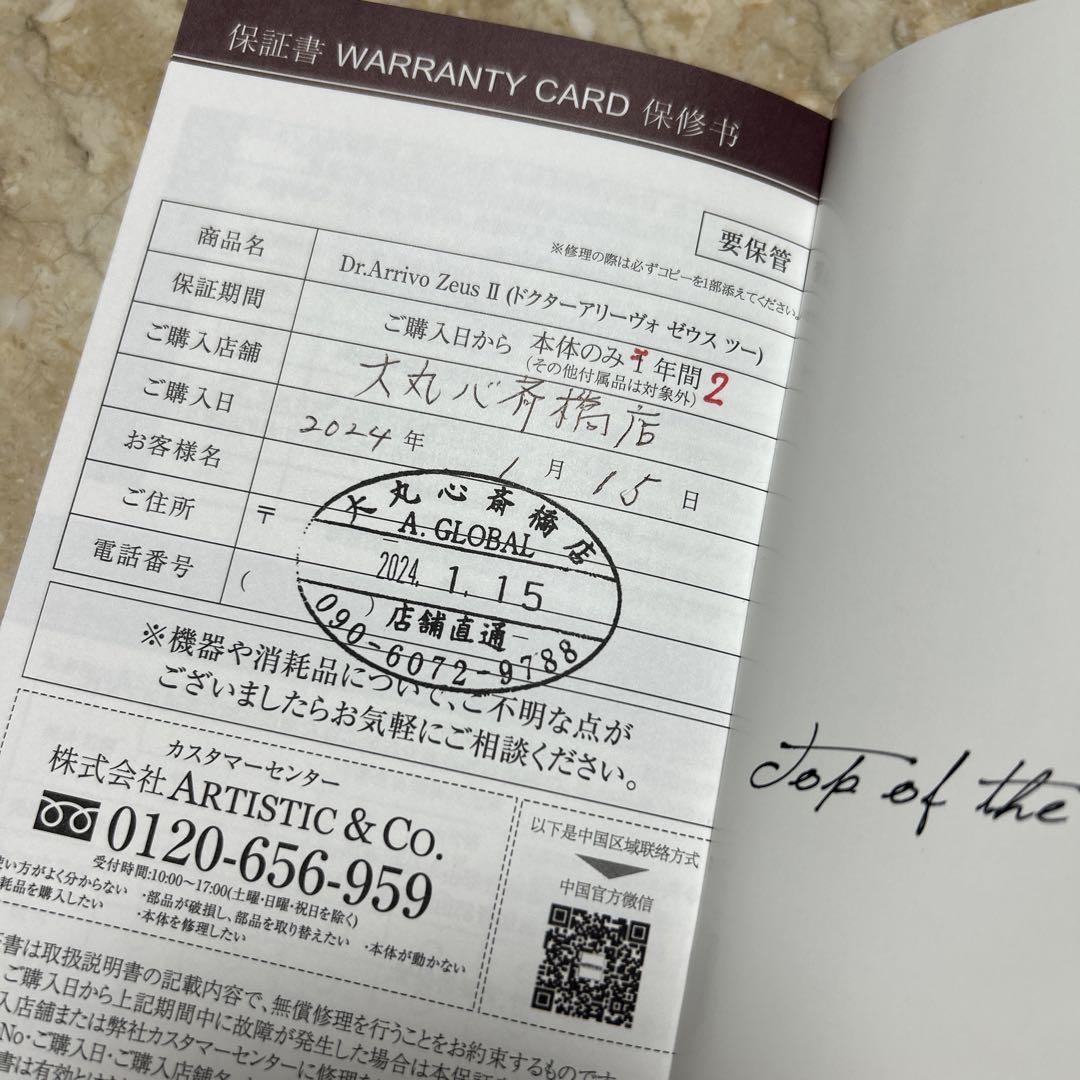 保証書 WARRANTY CARD 保修书
要保管
※修理の際は必ずコピーを1部添えてください。
商品名 Dr.Arrivo Zeus II (ドクターアリーヴォ ゼウス ツー)
保証期間 ご購入日から 本体のみ1年間 2
(その他付属品は対象外)
ご購入店舗 大丸心斎橋店
ご購入日 2024年 1月 15日
お客様名
ご住所 〒
電話番号 ( )
大丸心斎橋店
A. GLOBAL
2024. 1. 15
店舗直通
090-6072-9788
※機器や消耗品について、ご不明な点が
ございましたらお気軽にご相談ください。
カスタマーセンター
株式会社 ARTISTIC & CO.
0120-656-959
受付時間:10:00〜17:00(土曜・日曜・祝日を除く)
使い方がよく分からない ・部品が破損し、部品を取り替えたい ・本体が動かない
耗品を購入したい ・本体を修理したい
以下是中国区域联络方式
中国官方微信
書は取扱説明書の記載内容で、無償修理を行うことをお約束するものです
ご購入日から上記期間中に故障が発生した場合は本保証
入店舗または弊社カスタマーセンターに修理を
No・ご購入日・ご購入店舗名
書は有効とは
Top of the